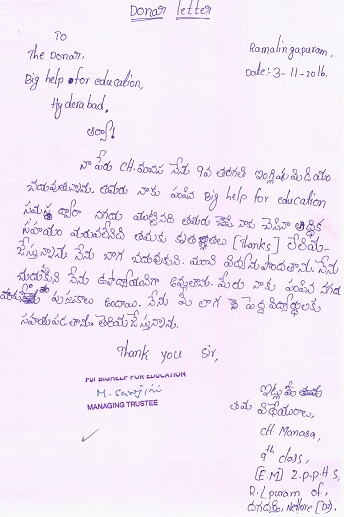 Donar letter
To
The Donar,
Big help for education,
Hyderabad,
Ramalingapuram,
Date:- 3-11-2016.
ఆర్యా!
నా పేరు CH. మానస నేను 9వ తరగతి ఇంగ్లీషు మీడియం
చదువుతున్నాను. తమరు నాకు పంపిన Big help for education
సంస్థ ద్వారా నగదు తమరు నాకు చేసిన ఆర్థిక
సహాయం మరువలేనిది తమకు కృతజ్ఞతలు [Thanks] తెలియ-
జేస్తున్నాను నేను బాగ చదువుకుని. మంచి నేను
చదుకుని నేను ఉపాధ్యాయినిగా ఉన్నతాను. మీరు నాకు పంపిన నగదు
పుస్తకాలు ఉందాయి. నేను మీ లాగ పెద్ద
సహయపడతాను తెలియజేస్తున్నాను.
Thank you Sir,
For BIGHELP FOR EDUCATION
MANAGING TRUSTEE
ఇట్లు మీ
తమ విధేయురాలు,
CH. Manasa,
9th class,
[E.M] Z.p.p.H.S,
R.L puram of,
దగదర్తి, Nellore [Dt].